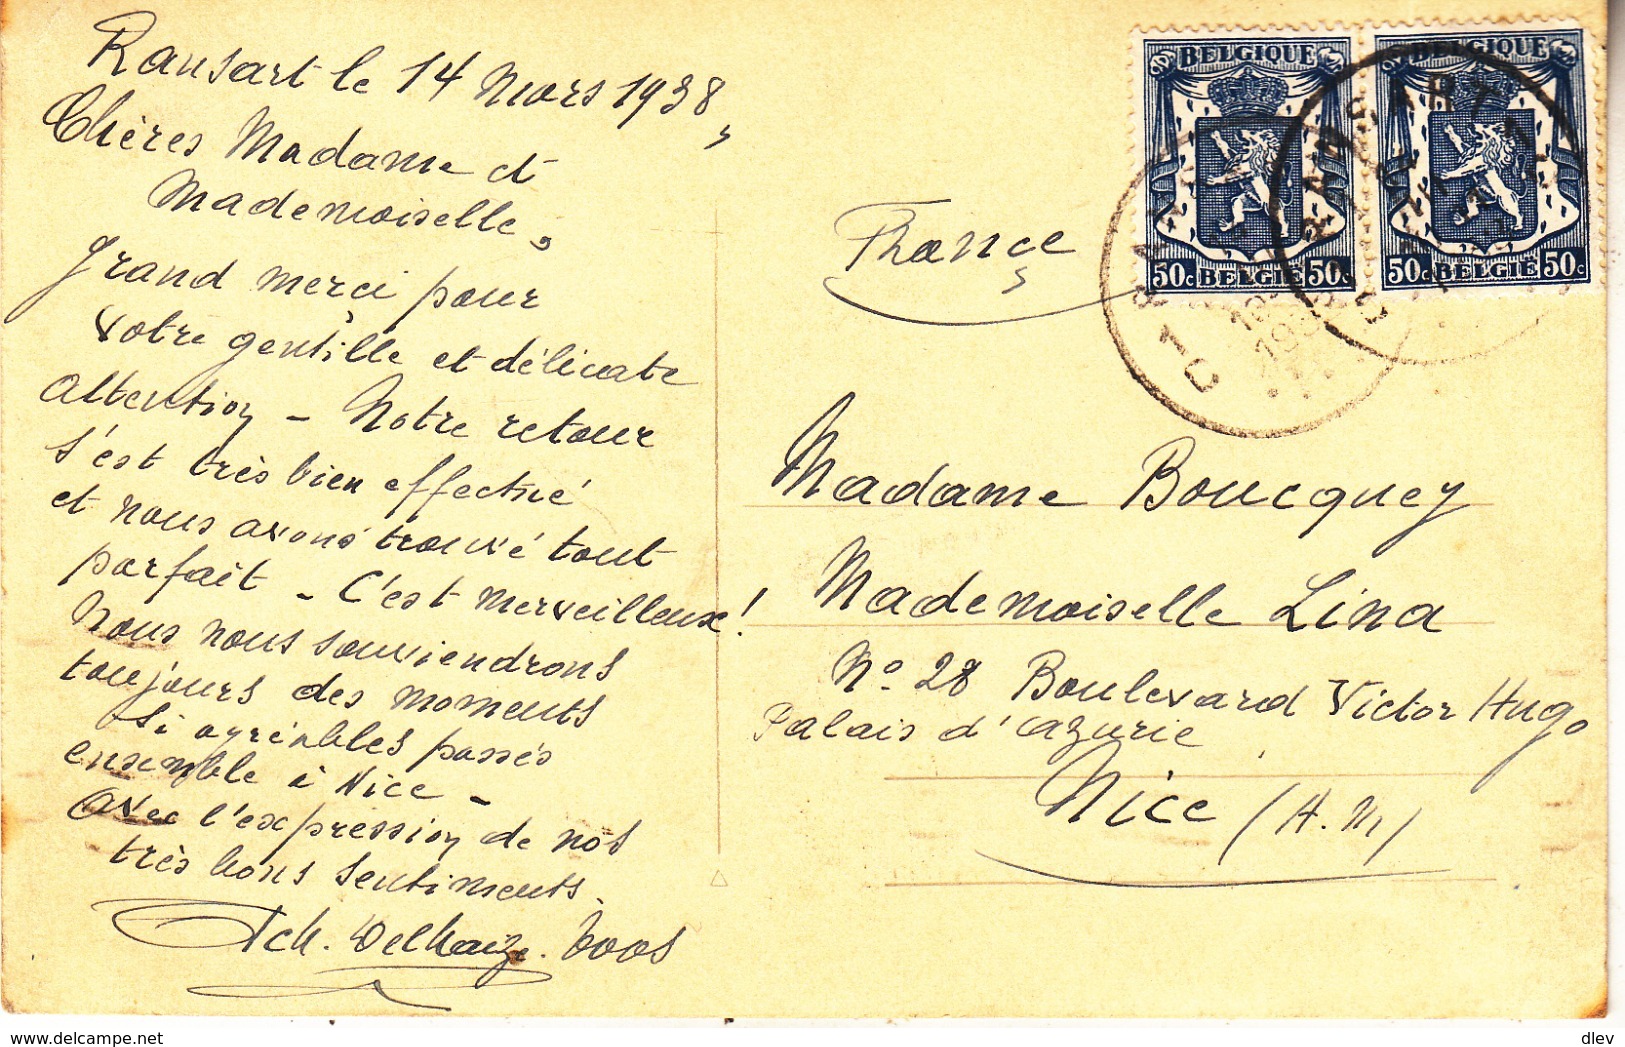 Ransart le 14 Mars 1938,
Chères Madame et
Mademoiselle,
Grand merci pour
votre gentille et délicate
attention – Notre retour
s'est très bien effectué
et nous avons trouvé tout
parfait – C'est merveilleux!
Nous nous souviendrons
toujours des moments
si agréables passés
ensemble à Nice –
Avec l'expression de nos
très bons sentiments.
Ach. Delhaize. Voos
BELGIQUE
50c BELGIË 50c
BELGIQUE
50c BELGIË 50c
RANSART
1 C
France
Madame Boucquey
Mademoiselle Lina
No. 28 Boulevard Victor Hugo
Palais d'Azurie
Nice (A.M)
© www.delcampe.net
dlev